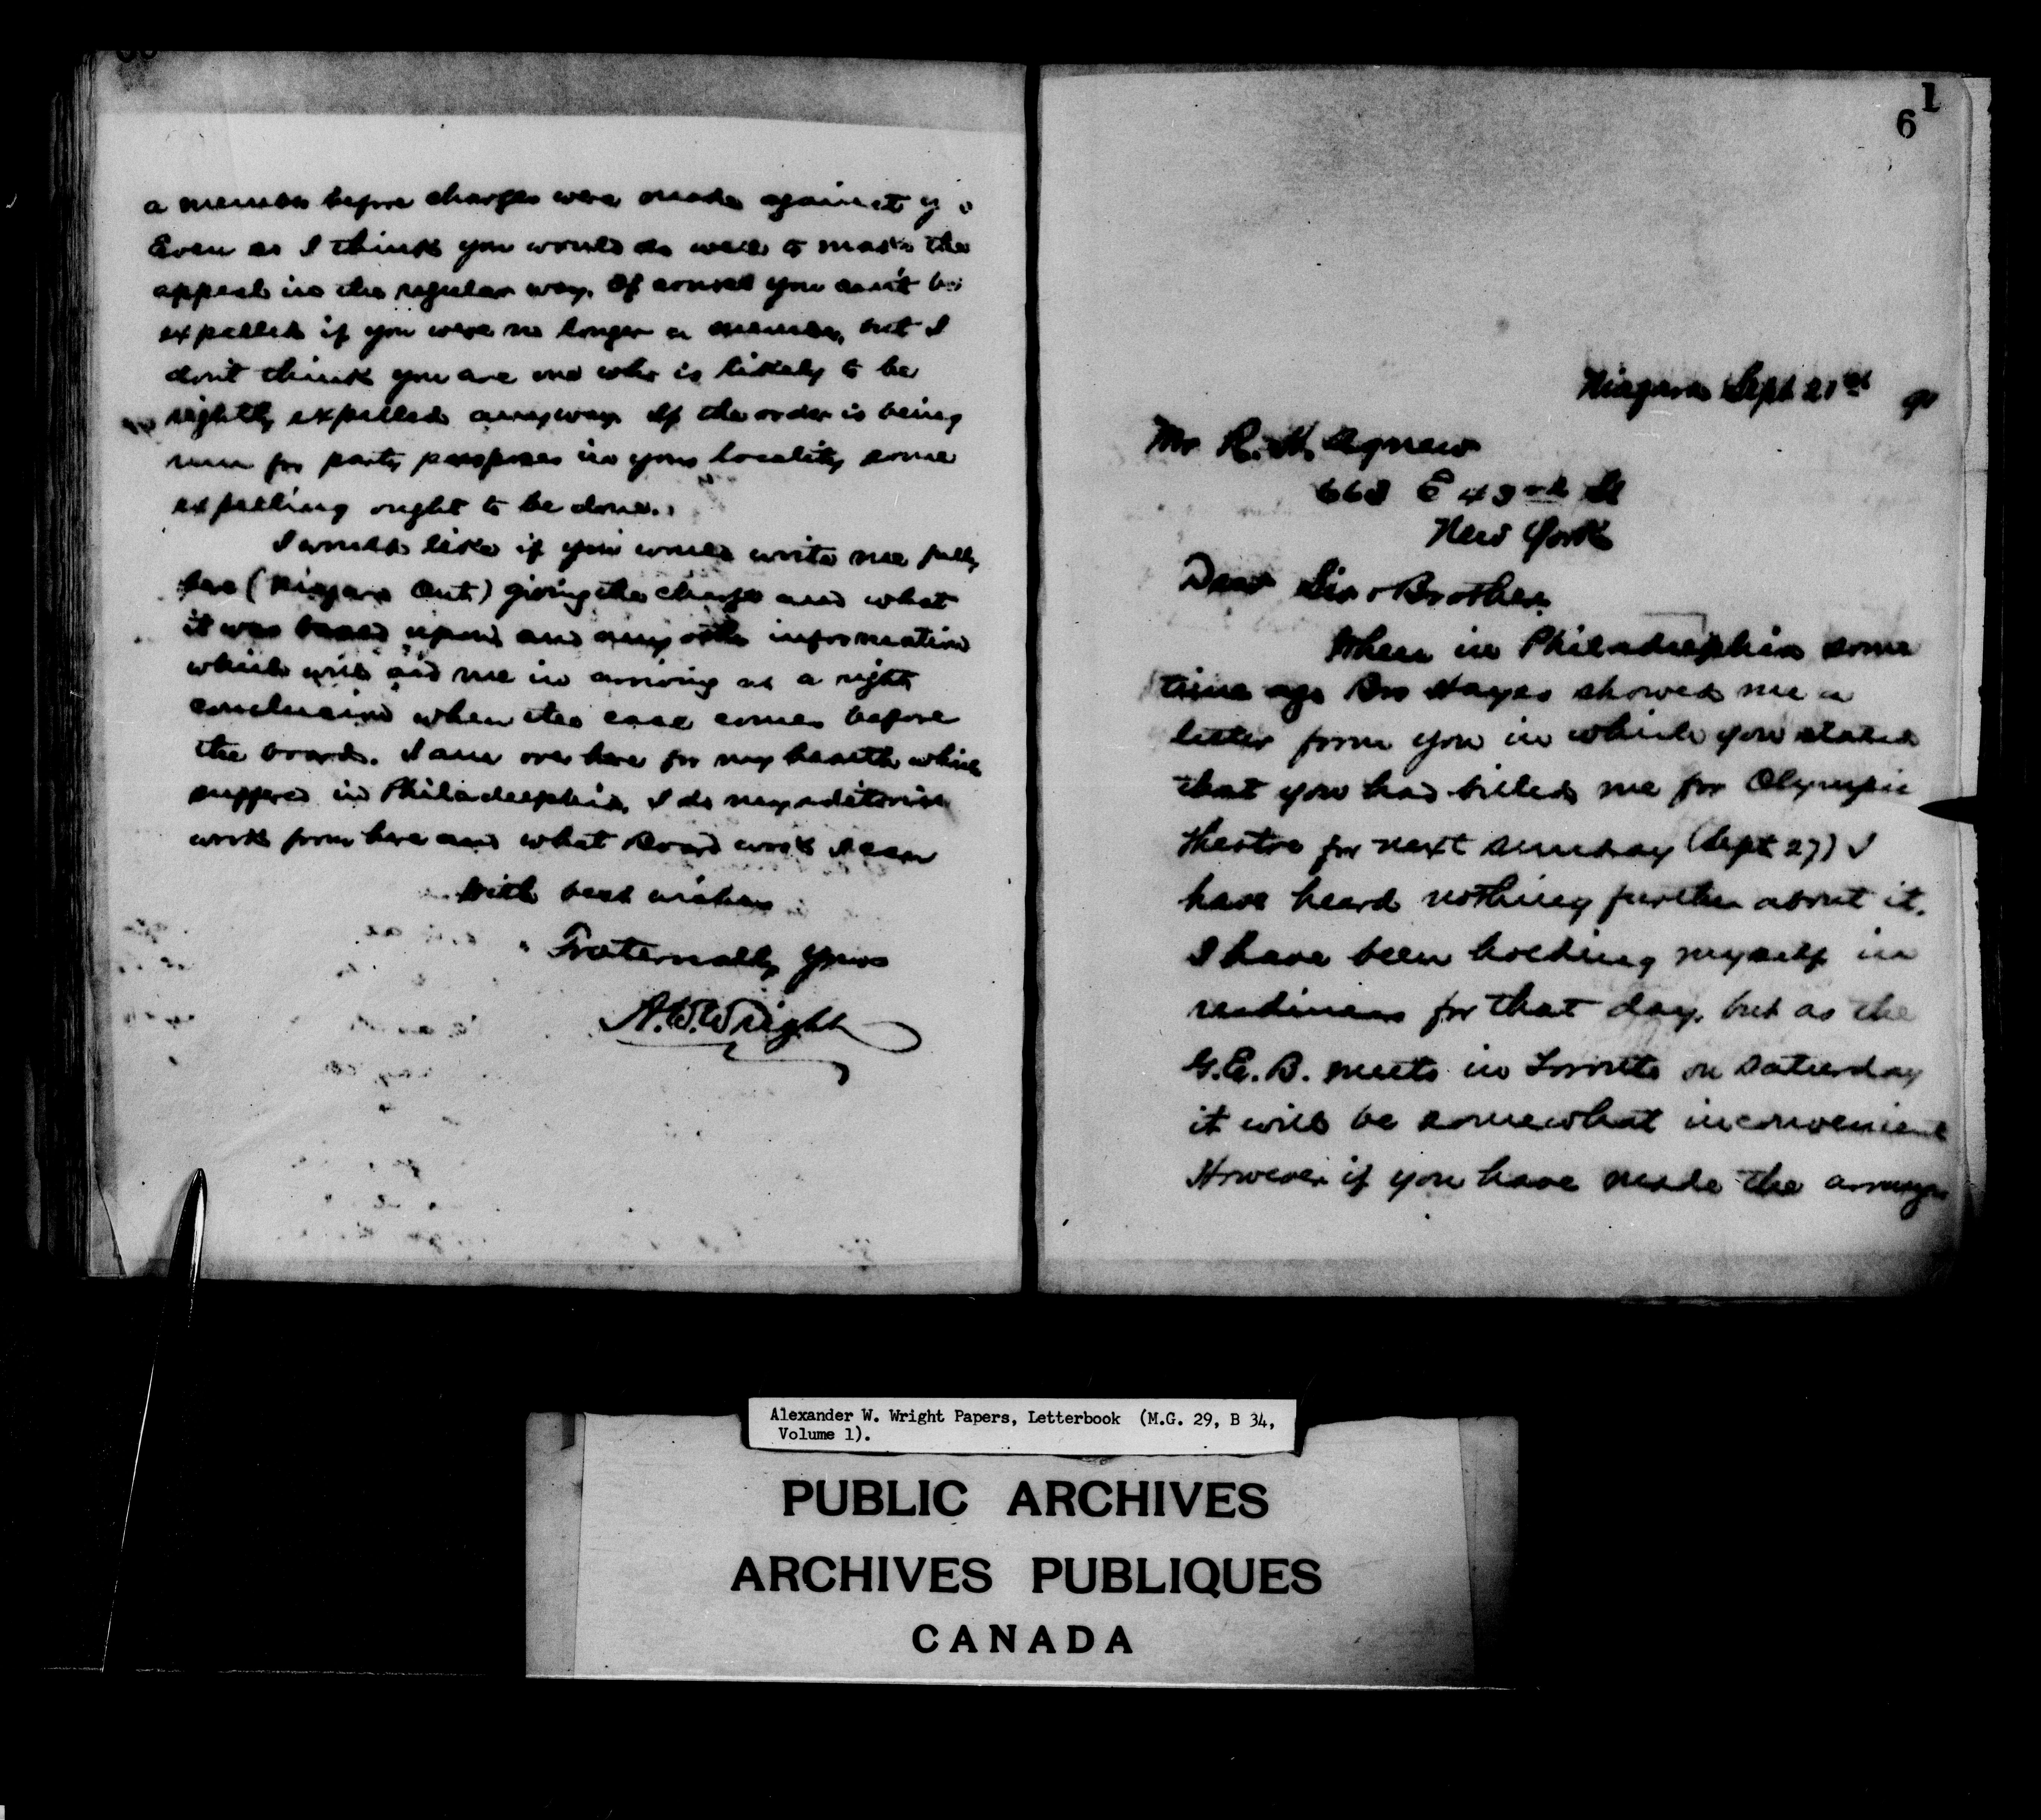 a member before charges were made against yo
Even so I think you would do well to make the
appeal in the regular way. Of course you can't be
expelled if you were no longer a member, but I
dont think you are one who is likely to be
rightly expelled anyway. If the order is being
run for party purposes in your locality some
expelling ought to be done.
I would like if you would write me fully
here (Niagara Ont) giving the charge and what
it was based upon and any other information
which will aid me in arriving at a right
conclusion when the case comes before
the board. I am over here for my health which
suffered in Philadelphia. I do my editorial
work from here and what Board work I can
With best wishes
Fraternally Yours
A.W. Wright
1
6
Niagara Sept 21st
Mr R. H. Agnew
668 E 43rd St
New York
Dear Sir & Brother
When in Philadelphia some
time ago Bro Hayes showed me a
letter from you in which you stated
that you had billed me for Olympic
Theatre for next Sunday (Sept 27) I
have heard nothing further about it.
I have been holding myself in
readiness for that day, but as the
G.E.B. meets in Toronto on Saturday
it will be somewhat inconvenient
However if you have made the arrange
Alexander W. Wright Papers, Letterbook (M.G. 29, B 34,
Volume 1).
PUBLIC ARCHIVES
ARCHIVES PUBLIQUES
CANADA